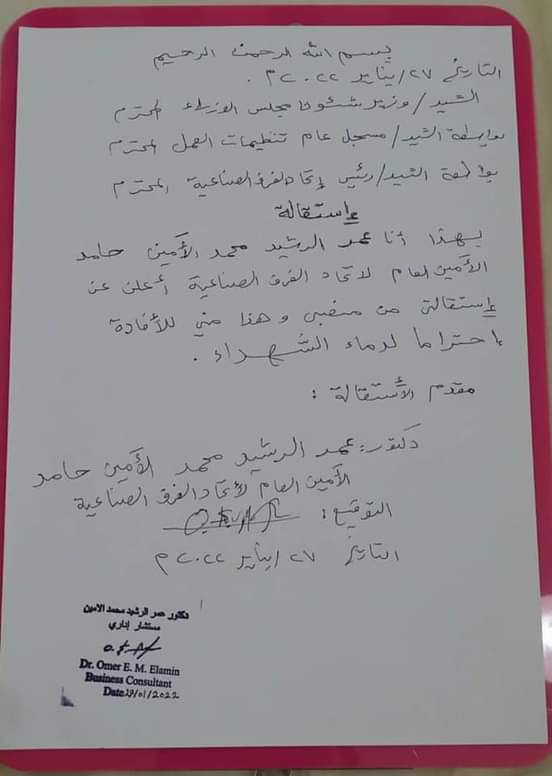 بسم الله الرحمن الرحيم
التاريخ ٢٧/يناير ٢٠٢٢م.
السيد/ وزير شئون مجلس الوزراء المحترم
بواسطة السيد/ مسجل عام تنظيمات العمل المحترم
بواسطة السيد/ رئيس إتحاد الغرف الصناعية المحترم
إستقالة
بهذا أنا عمر الرشيد محمد الأمين حامد
الأمين العام لاتحاد الغرف الصناعية أعلن عن
إستقالتي من منصبي وهذا مني للأفادة
احتراما لدماء الشهداء.
مقدم الأستقالة:
دكتور: عمر الرشيد محمد الأمين حامد
الأمين العام لأتحاد الغرف الصناعية
التوقيع:
التاريخ ٢٧ /يناير ٢٠٢٢م
دكتور عمر الرشيد محمد الامين
مستشار إداري
Dr. Omer E. M. Elamin
Business Consultant
Date 27/01/2022